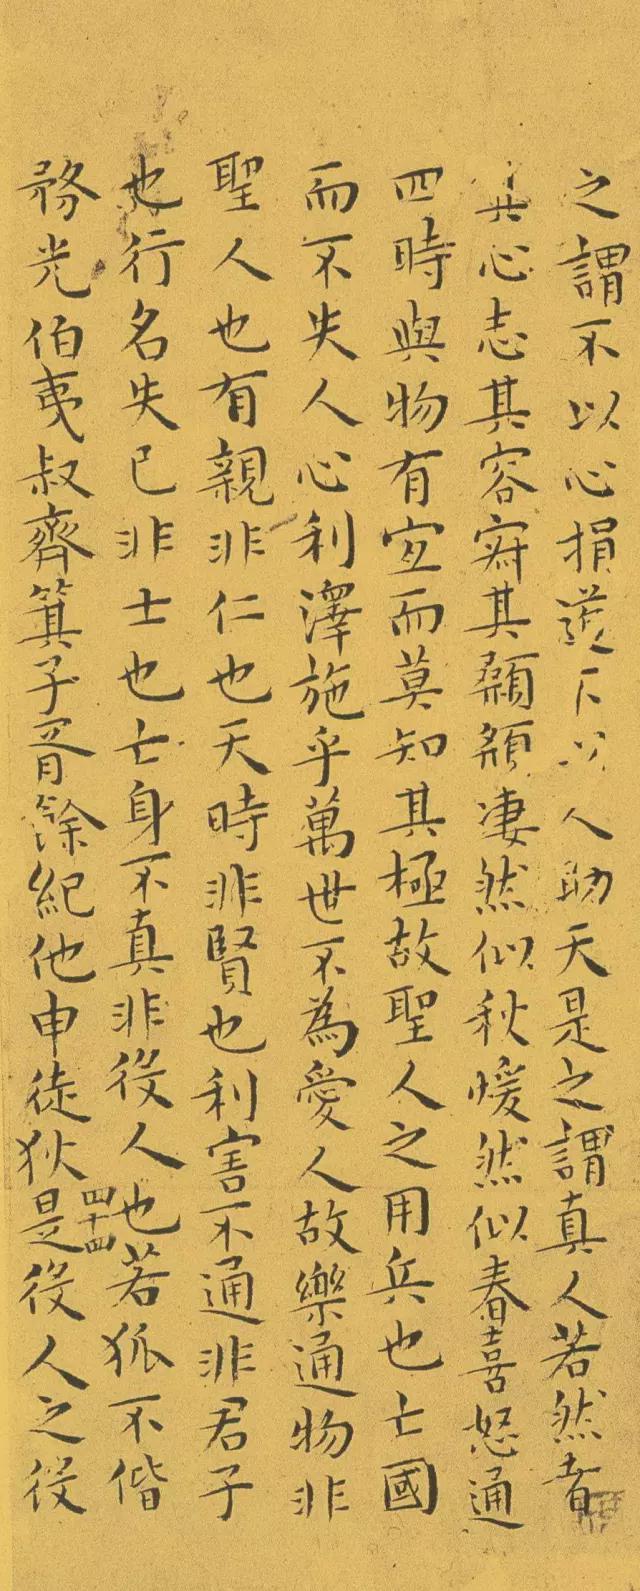 之謂不以心損道不以人助天是之謂真人若然者
其心志其容㝥其顙頯凄然似秋煖然似春喜怒通
四時與物有宜而莫知其極故聖人之用兵也亡國
而不失人心利澤施乎萬世不為愛人故樂通物非
聖人也有親非仁也天時非賢也利害不通非君子
也行名失己非士也亡身不真非役人也若狐不偕
務光伯夷叔齊箕子胥餘紀他申徒狄是役人之役
四十四